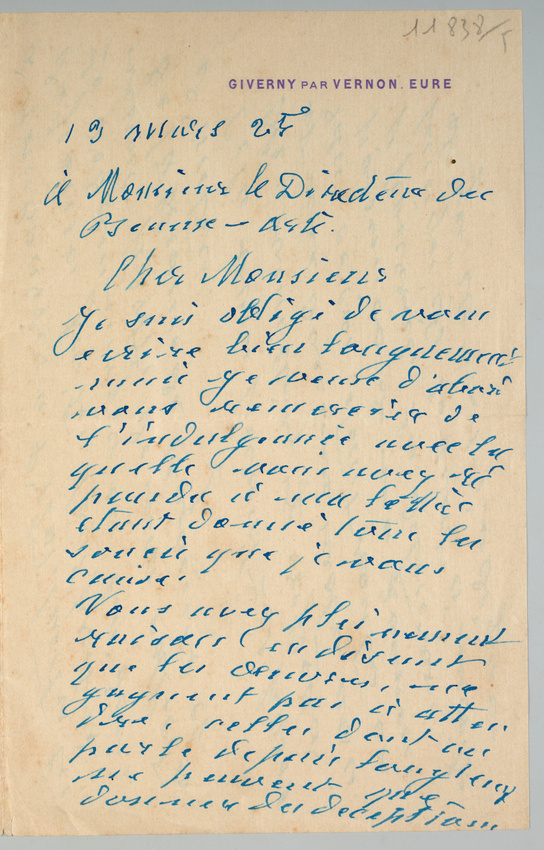 11838/5
GIVERNY PAR VERNON. EURE
19 mars 25
à Monsieur le Directeur des
Beaux-Arts.
Cher Monsieur
Je suis obligé de vous
ecrire bien longuement
mais je veux d'abord
vous remercier de
l'indulgence avec la
quelle vous avez ré
pondu à ma lettre
etant donné tous les
soucis que je vous
cause.
Vous avez pleinement
raison en disant
que les oeuvres, ne
gagnent pas à atten
dre, celles dont on
parle depuis longtemps
ne peuvent que
donner des deceptions